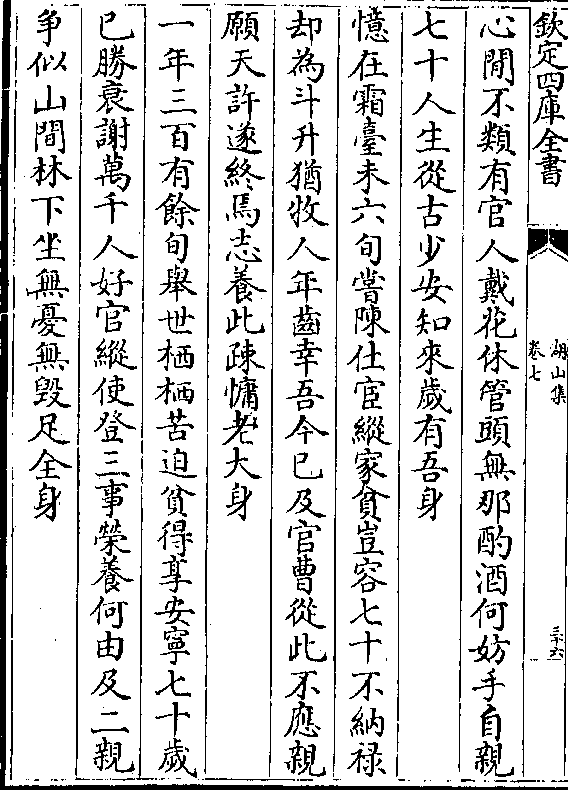 欽定四庫全書
湖山集
卷七
三十六
心閒不類有官人戴花休管頭無那酌酒何妨手自親
七十人生從古少安知來歲有吾身
憶在霜臺未六旬嘗陳仕宦縱家貧豈容七十不納祿
却為斗升猶牧人年齒幸吾今已及官曹從此不應親
願天許遂終焉志養此疎慵老大身
一年三百有餘旬舉世栖栖苦迫貧得享安寧七十歲
已勝衰謝萬千人好官縱使登三事榮養何由及二親
争似山間林下坐無憂無毁足全身